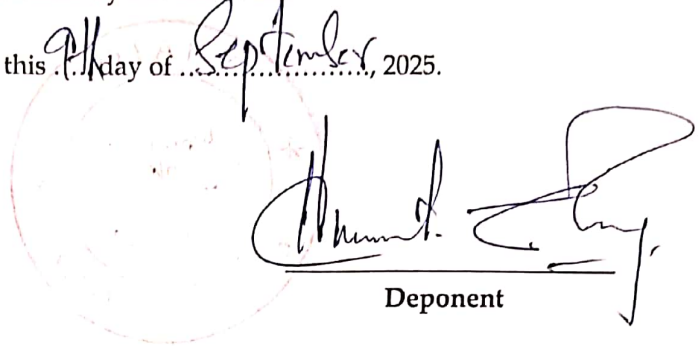 this 9th day of September, 2025.
Deponent